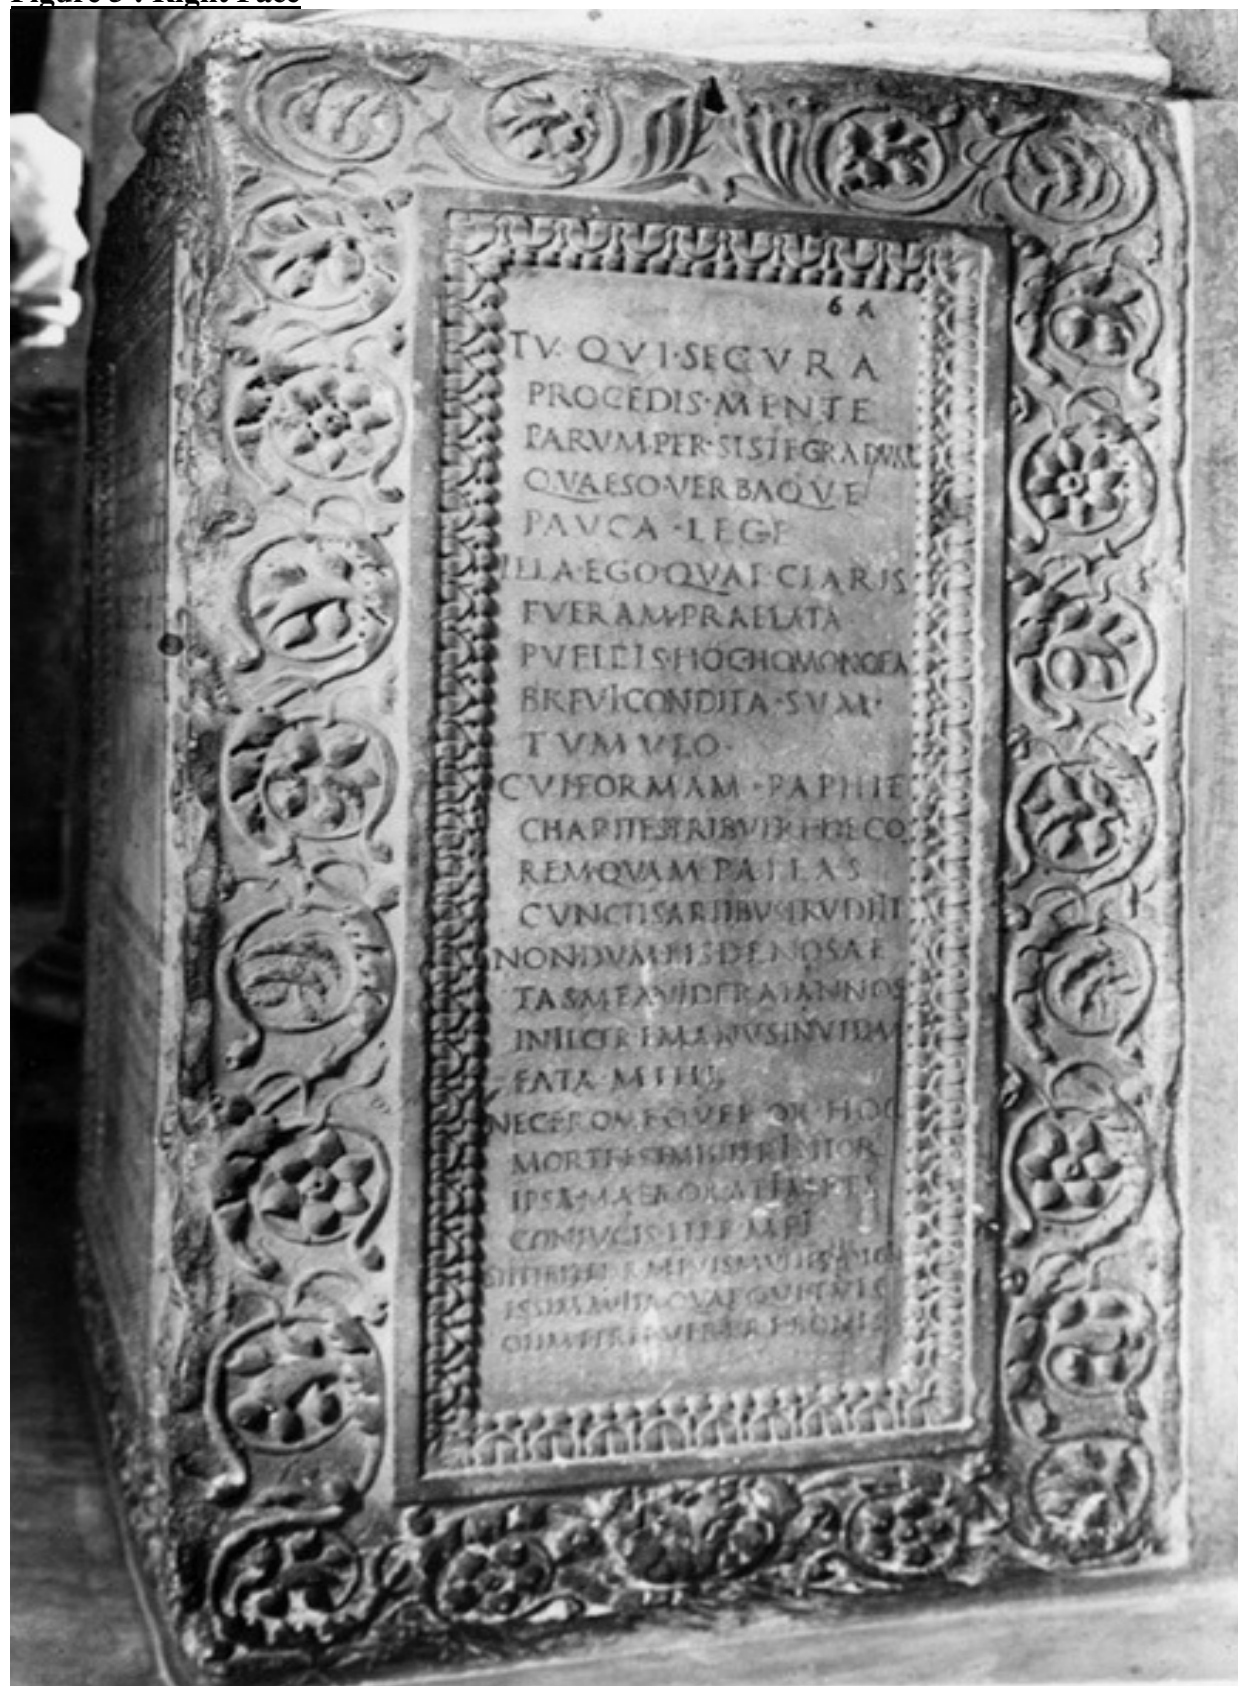 Figure : Right Face
6 A
TV· QVI·SECVRA
PROCEDIS·MENTE
PARVMPER·SISTEGRADVM
QVAESO·VERBAQVE
PAVCA·LEGE
ILLA·EGO·QVAE·CLARIS
FVERAM·PRAELATA
PVELLIS·HOC·HOMONOEA
BREVI·CONDITA·SVM·
TVMVLO·
CVI·FORMAM·PAPHIE
CHARITES·TRIBVERE·DECO
REM·QVAM·PALLAS
CVNCTIS·ARTIBVS·ERVDIIT
NONDVM·BIS·DENOS·AE
TAS·MEA·VIDERAT·ANNOS
INIECERE·MANVS·INVIDA
FATA·MIHI
NEC·PRO·ME·QVEROR·HOC
MORTE·EST·MIHI·TRISTIOR
IPSA·MAEROR·ATIMETI
CONIVGIS·ILLE·MEI
SIT·TIBI·TERRA·LEVIS·MVLIER·DIGN
ISSIMA·VITA·QVAEQVE·TVIS
OLIM·PERFRVERERE·BONIS